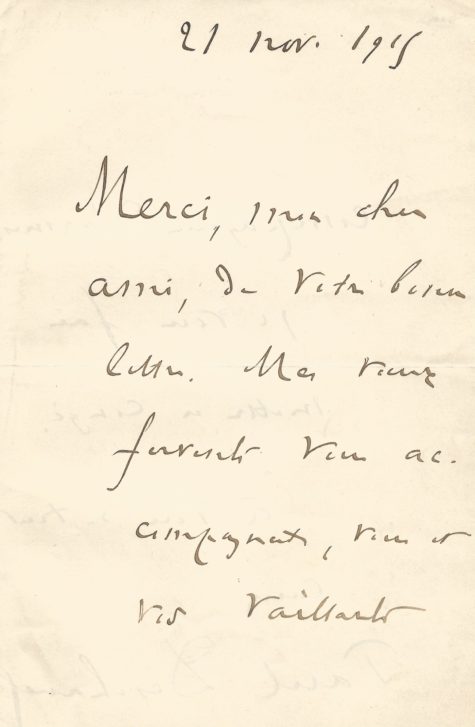 21 nov. 1915
Merci, mon cher
ami, de votre bonne
lettre. Mes vœux
fervents vous ac-
compagnent, vous et
vos vaillants